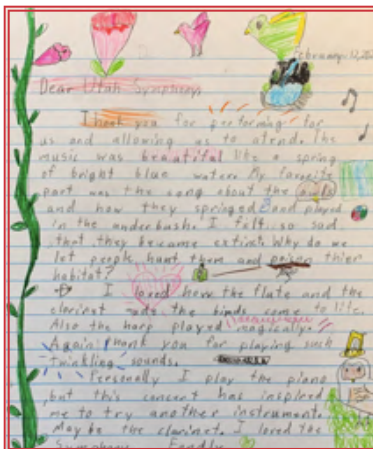 February 12, 20
Dear Utah Symphony,
Thank you for performing for
us and allowing us to atend. The
music was beautiful like a spring
of bright blue water. My favorite
part was the song about the
and how they springed and played
in the underbush. I felt so sad
that they became extinct. Why do we
let people hunt them and poisen thier
habitat?
I loved how the flute and the
clarinet made the birds come to life.
Also the harp played magically.
Again thank you for playing such
twinkling sounds.
Personally I play the piano
but this concert has inspired
me to try another instrument.
May be the clarinet. I loved the
Symphony. Fondly